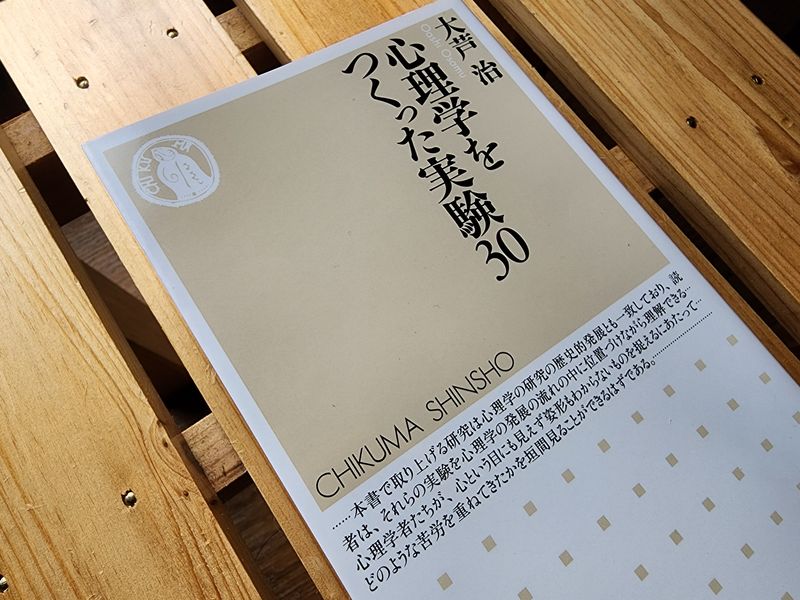 大芦 治
Oashi Osamu
心理学を
つくった実験30
CHIKUMA SHINSHO
……本書で取り上げる研究は心理学の研究の歴史的発展とも一致しており、読
者は、それらの実験を心理学の発展の流れの中に位置づけながら理解できる…
心理学者たちが、心という目にも見えず姿形もわからないものを捉えるにあたって…
どのような苦労を重ねてきたかを垣間見ることができるはずである。……………